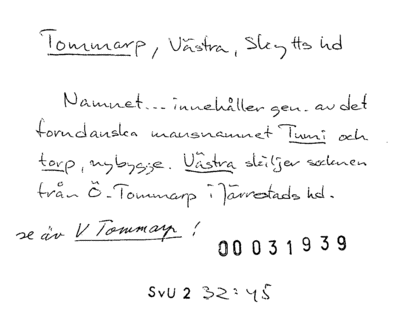 Tommarp, Västra, Skytts hd
Namnet... innehåller gen. av det
forndanska mansnamnet Tumi och
torp, nybygge. Västra skiljer socknen
från Ö. Tommarp i Järrestads hd.
se äv V Tommarp!
00031939
SvU 2 32:45